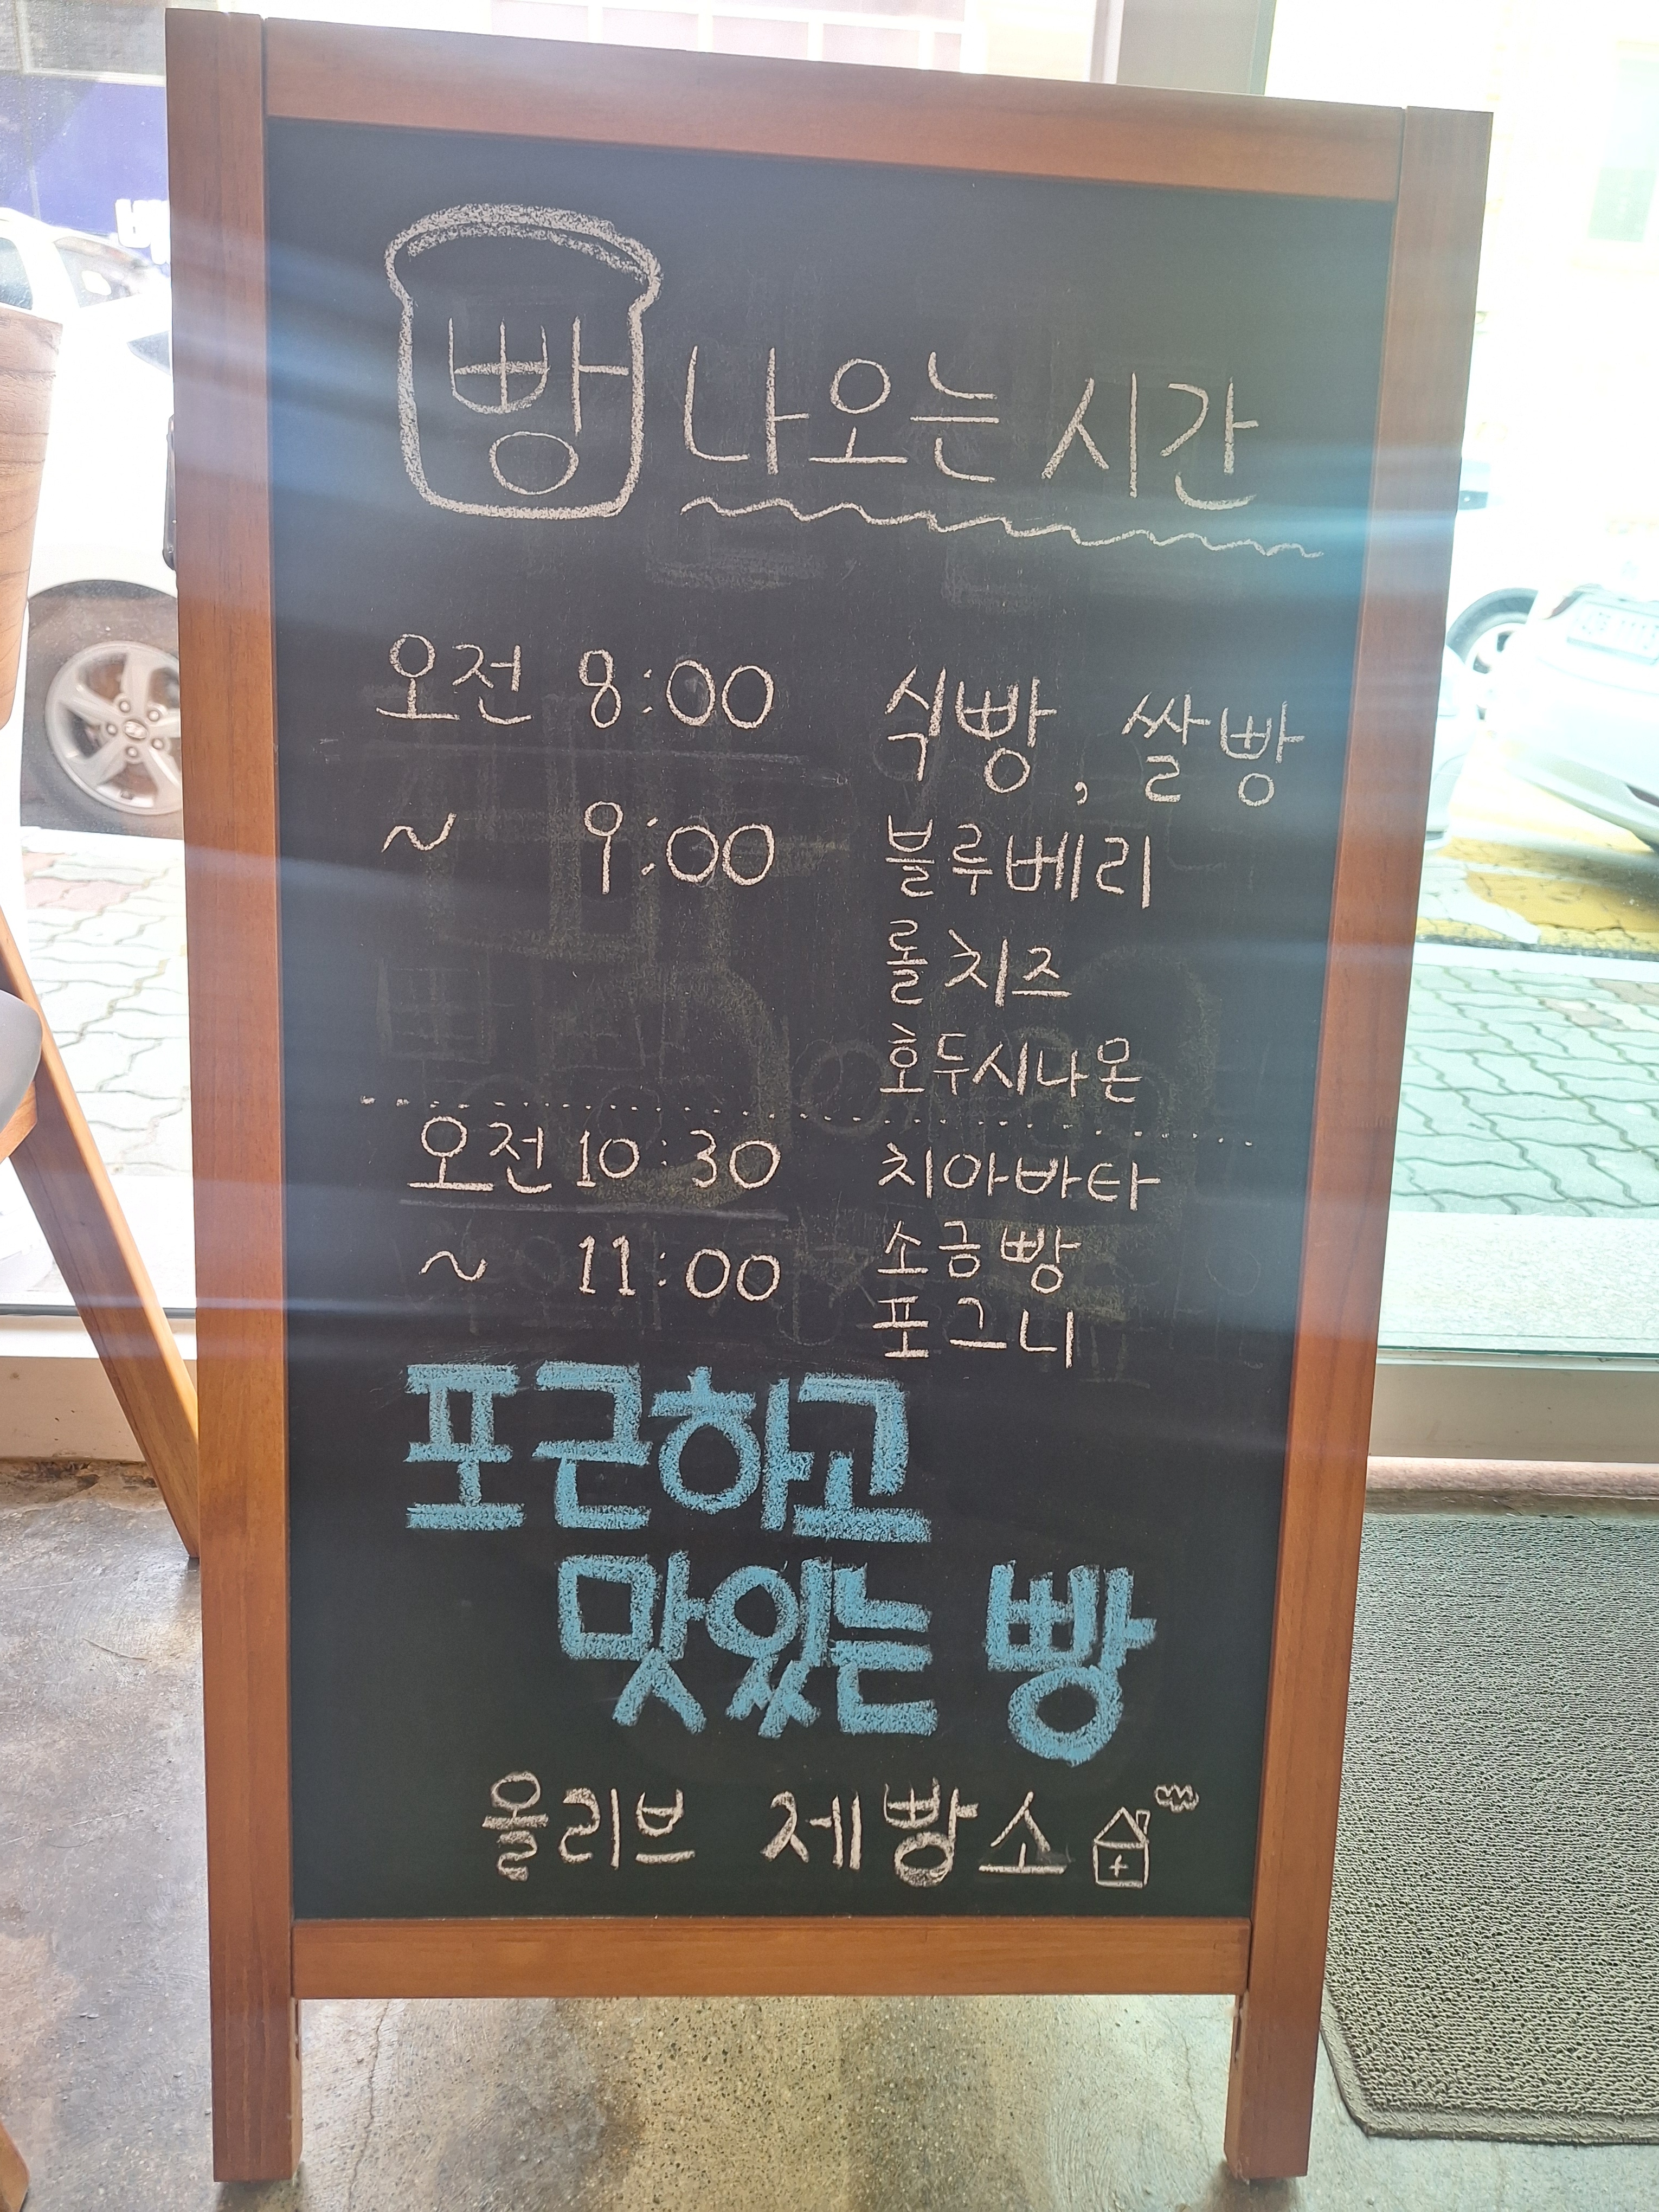 빵 나오는 시간
오전 8:00 식빵, 쌀빵
~ 9:00 블루베리
롤치즈
호두시나온
오전 10:30 치아바타
~ 11:00 소금빵
포그니
포근하고
맛있는 빵
올리브 제빵소